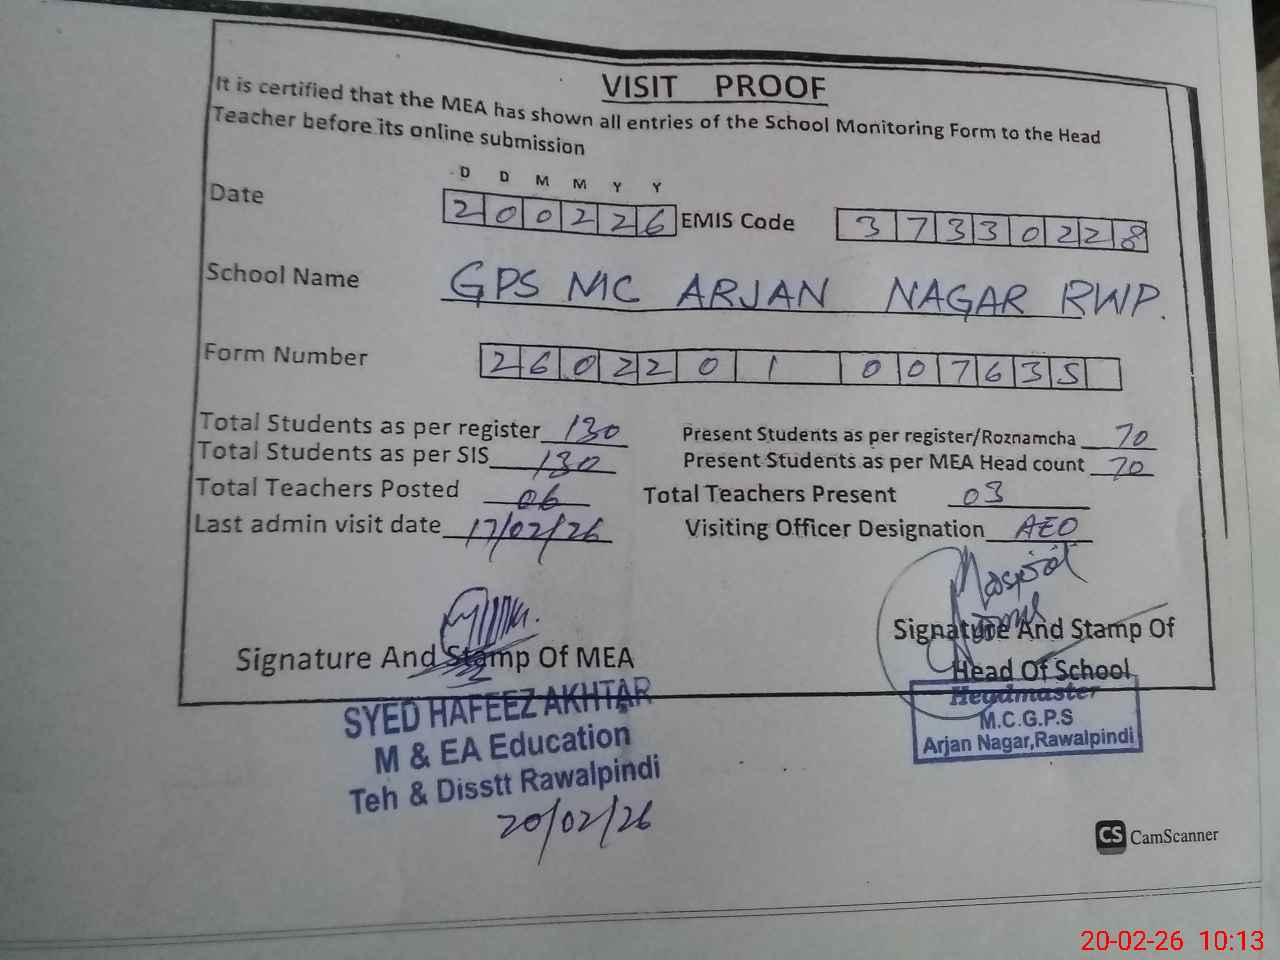 VISIT PROOF
It is certified that the MEA has shown all entries of the School Monitoring Form to the Head
Teacher before its online submission
D D M M Y Y
Date 200226 EMIS Code 37330228
School Name GPS MC ARJAN NAGAR RWP.
Form Number 2602201007635
Total Students as per register 130 Present Students as per register/Roznamcha 70
Total Students as per SIS 130 Present Students as per MEA Head count 70
Total Teachers Posted 06 Total Teachers Present 03
Last admin visit date 17/02/26 Visiting Officer Designation AEO
Signature And Stamp Of MEA
Signature And Stamp Of
Head Of School
SYED HAFEEZ AKHTAR
M & EA Education
Teh & Disstt Rawalpindi
20/02/26
Headmaster
M.C.G.P.S
Arjan Nagar,Rawalpindi
CS CamScanner
20-02-26 10:13